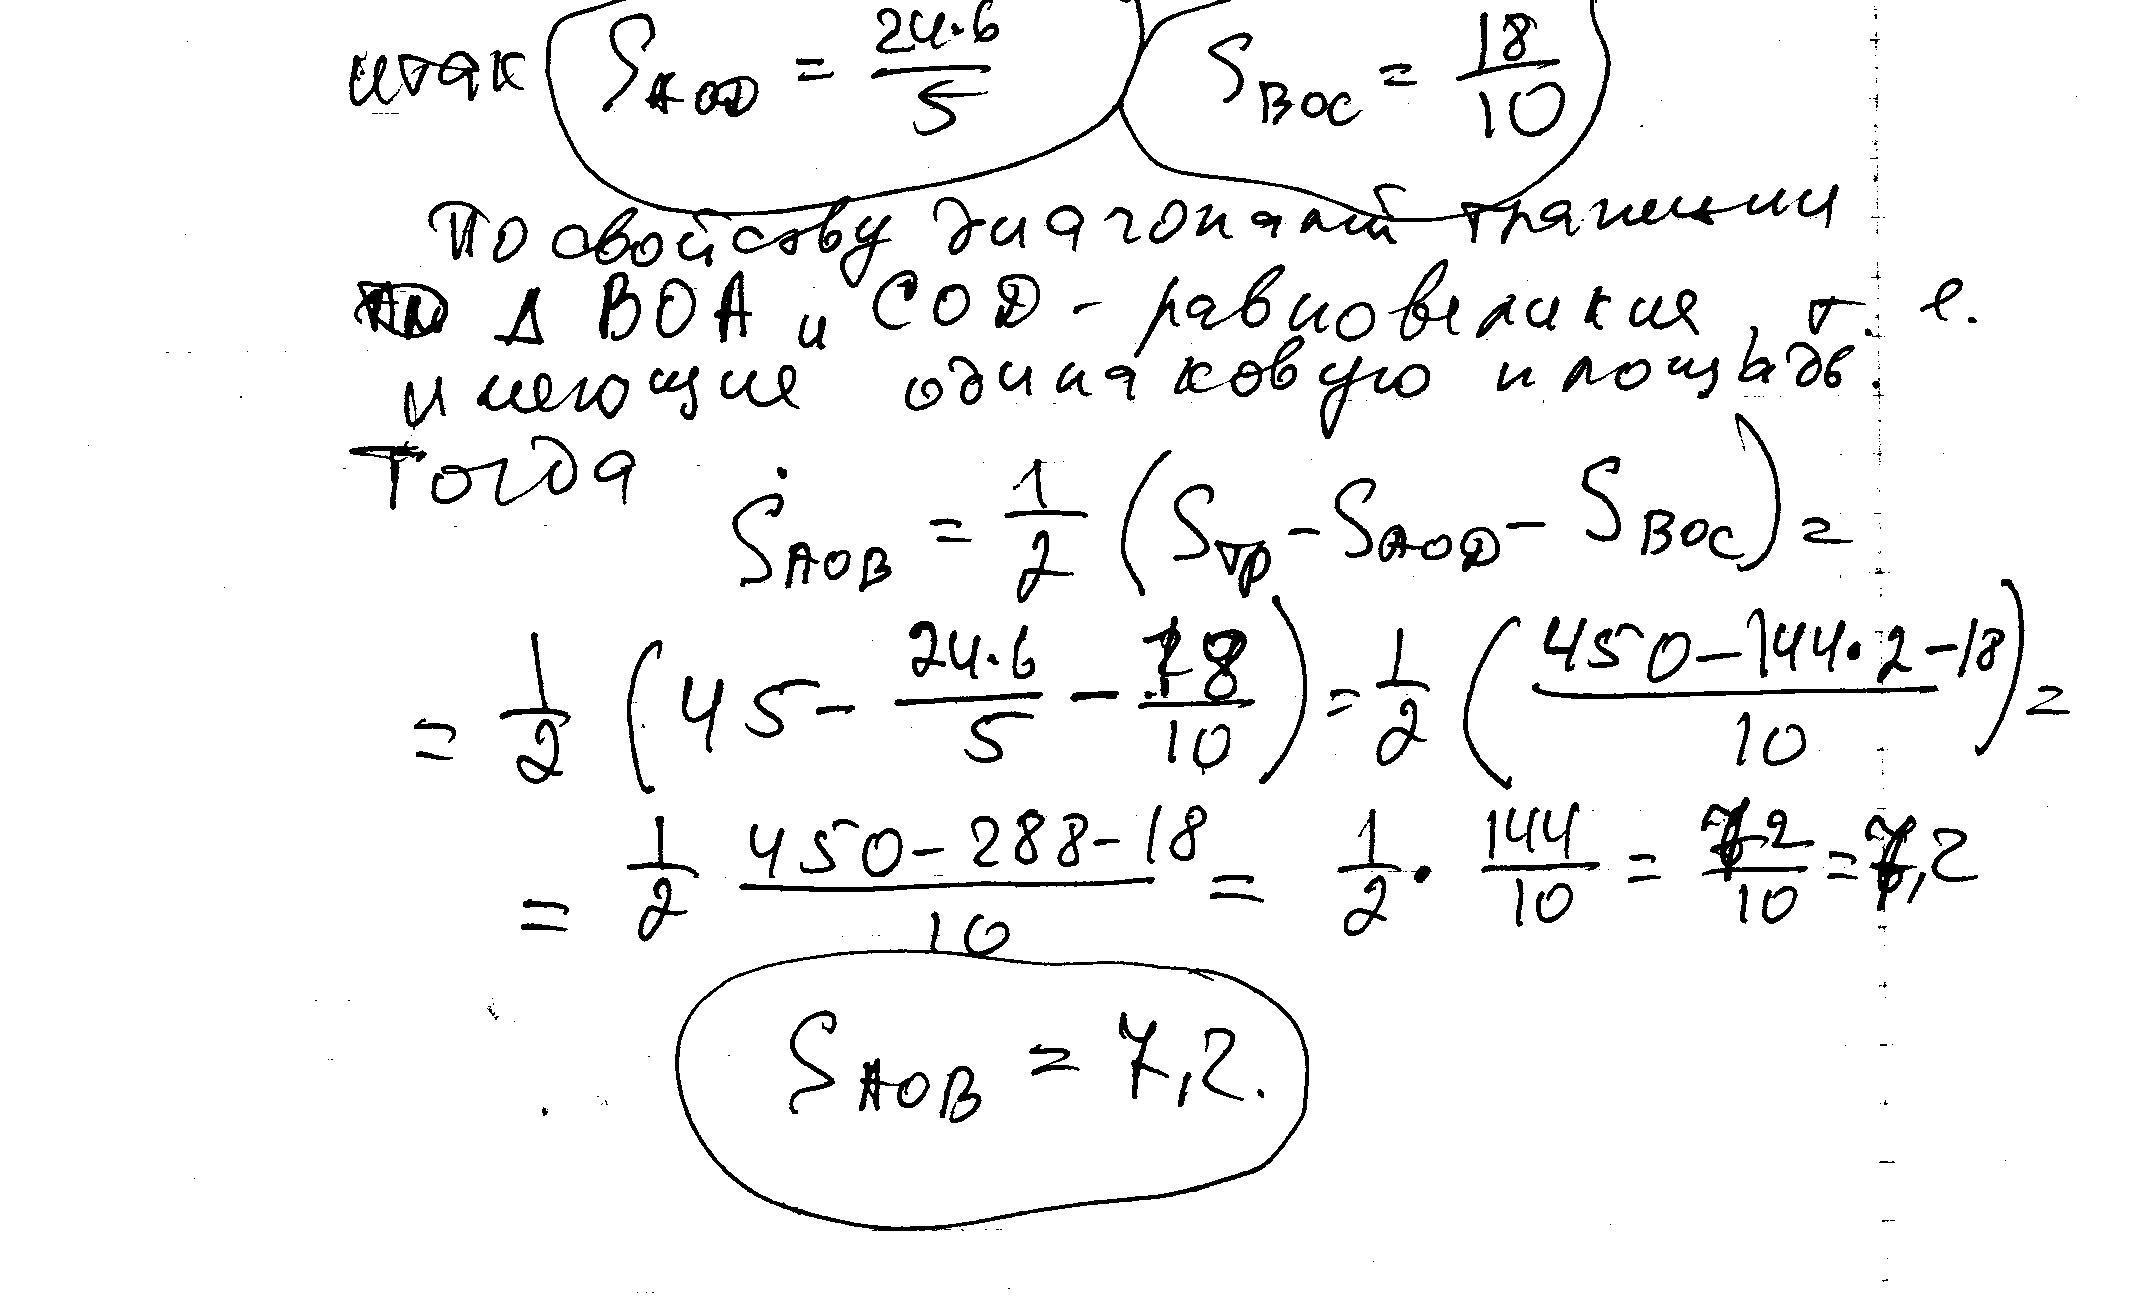 итак S_AOD = 24·6/5 S_BOC = 18/10
По свойству диагоналей трапеции
Δ BOA и COD - равновеликие, т. е.
имеющие одинаковую площадь.
Тогда
S_AOB = 1/2 (S_тр - S_AOD - S_BOC) =
= 1/2 (45 - 24·6/5 - 18/10) = 1/2 (450 - 144·2 - 18/10) =
= 1/2 450 - 288 - 18/10 = 1/2 · 144/10 = 72/10 = 7,2
S_AOB = 7,2.